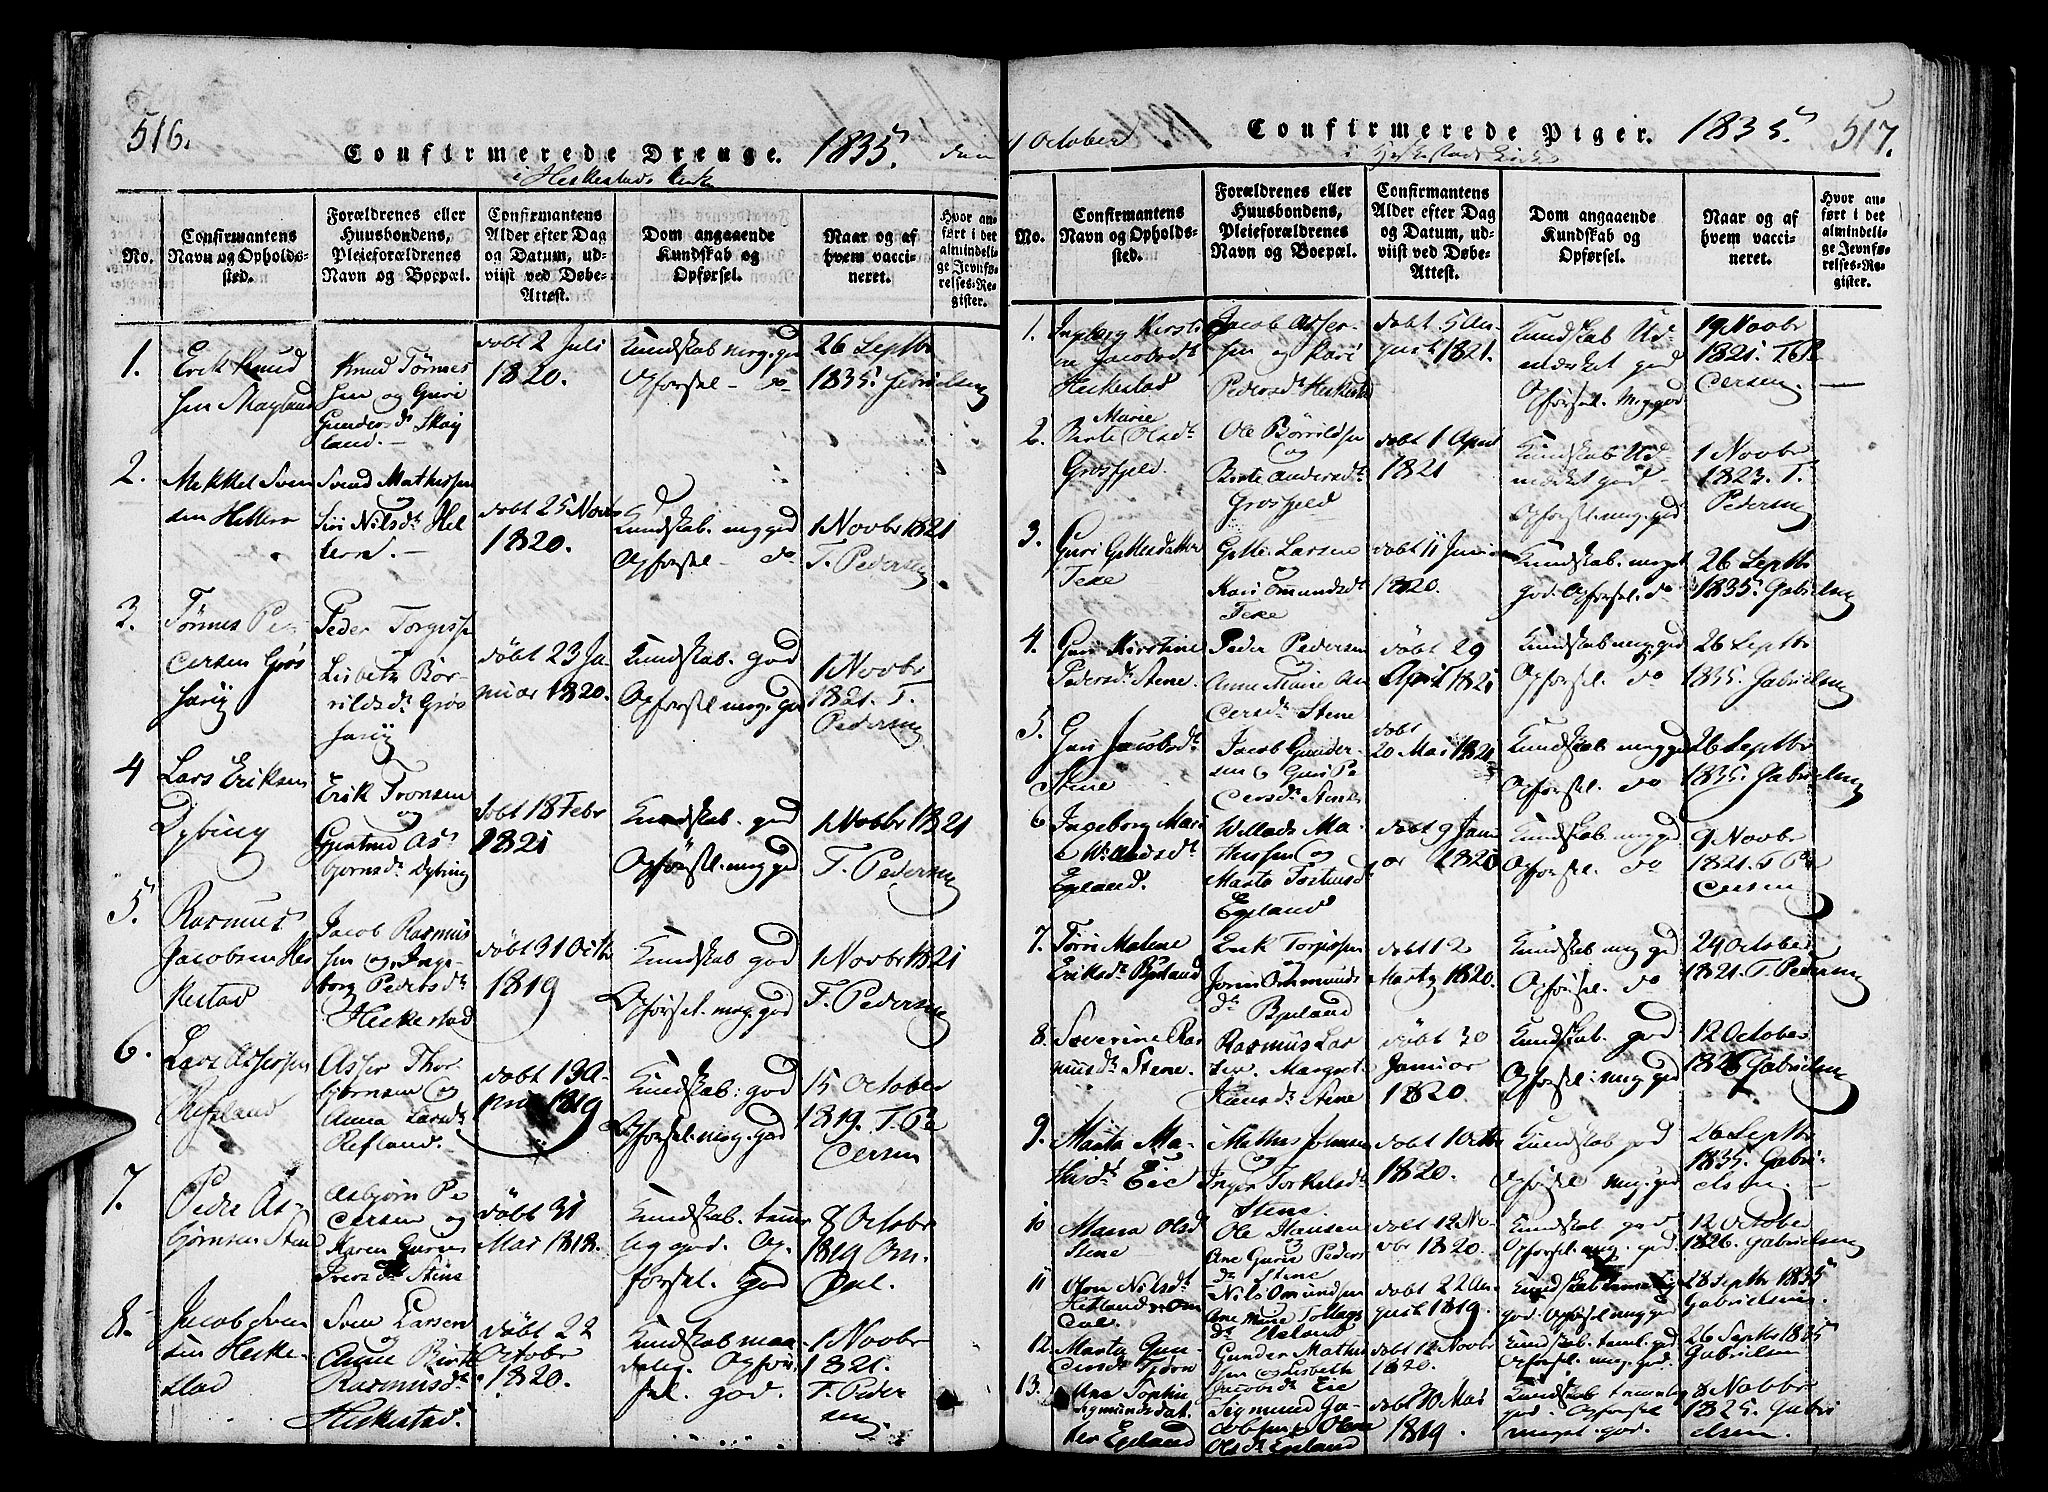 516.
Confirmerede Drenge. 1835. den
i Heskestads Kirke
No.
Confirmantens
Navn og Opholds-
sted.
Forældrenes eller
Huusbondens,
Pleieforældrenes
Navn og Boepæl.
Confirmantens
Alder efter Dag
og Datum, ud-
viist ved Døbe-
Attest.
Dom angaaende
Kundskab og
Opførsel.
Naar og af
hvem vacci-
neret.
Hvor an-
ført i det
almindeli-
ge Jevnfø-
relses-Re-
gister.
1.
Erik Knud
sen Skayland
Knud Tønnes
sen og Guri
Gundersd. Skay
land.
døbt 2 Juli
1820.
Kundskab meg. god
Opførsel do
26 Septbr
1835 Gabrielsen
2.
Mikkel Sven
sen Hellern
Svend Mathissen
Siri Nilsdt. Hel
lern.
døbt 25 Novbr
1820.
Kundskab. meg god
Opførsel do
1 Novbr 1821
T. Pedersen
3.
Tønnes Pe
dersen Grøs
Peder Torgissen
Lisbeth Bør-
rildsdt. Grøs
døbt 23 Ja-
nuar 1820.
Kundskab. god
Opførsel meg. god
1 Novbr
1821. T.
Pedersen
4
Lars Eriksen
Dybing
Erik Tronsen
og
Gjertrud As
bjørnsdt. Dybing
døbt 18 Febr
1821
Kundskab. god
Opførsel. meg god
1 Novbr 1821
T. Pedersen
5.
Rasmus
Jacobsen Hes
kestad
Jacob Rasmus
sen og Inge
borg Pedersdt.
Heskestad
døbt 31 Octbr
1819
Kundskab god
Opførsel. meg. god
1 Novbr 1821
T. Pedersen
6.
Lars Assersen
Refsland
Asser Thor
bjørnsen og
Anna Larsdt.
Refsland.
døbt 13 A-
pril 1819
Kundskab: god
Opførsel. meg. god
15 October
1819. T. Pe
dersen
7.
Peder As-
bjørnsen Stene
Asbjørn Pe
dersen og
Karen Gurine
Iversdt. Stene
døbt 31
Mai 1818.
Kundskab. teme
lig god. Op-
førsel. god
8 Octobr
1819 Om-
dal.
8.
Jacob Sven
sen Heske-
stad
Sven Larsen
og
Anne Birte
Rasmusdt.
Heskestad.
døbt 22
Octobr
1820.
Kundskab maa-
delig. Opfør
sel. god.
1 Novbr
1821.
T. Peder
sen.
4 October
Confirmerede Piger. 1835. 517.
i Heskestads Kirke
No.
Confirmantens
Navn og Opholds-
sted.
Forældrenes eller
Huusbondens,
Pleieforældrenes
Navn og Boepæl.
Confirmantens
Alder efter Dag
og Datum, ud-
viist ved Døbe-
Attest.
Dom angaaende
Kundskab og
Opførsel.
Naar og af
hvem vacci-
neret.
Hvor an-
ført i det
almindeli-
ge Jevnfø-
relses-Re-
gister.
1.
Ingborg Kirsti
ne Jacobsdt
Heskestad
Jacob Asser-
sen og Kari
Pedersdt Heskestad
døbt 5 Au-
gust 1821.
Kundskab Ud-
mærket god
Opførsel. meg. god
19 Novbr
1821. T. Pe
dersen.
2.
Marie
Birte Olsdt.
Grosfjeld.
Ole Børrildsen
og
Birte Andersdt.
Grosfjeld
døbt 1 April
1821
Kundskab Ud-
mærket god
Opførsel. meg. god
1 Novbr
1823. T.
Pedersen
3.
Guri Gittlesdatter
Teke
Gittle. Larsen
og
Kari Omundsdt.
Teke
døbt 11 Juni
1820.
Kundskab. meget
god. Opførsel. do
26 Septbr
1835. Gabrielsen
4.
Guri Kirstine
Pedersdt. Stene.
Peder Pedersen
Anne Marie An
dersdt. Stene
døbt 29
April 1821
Kundskab. meg. god
Opførsel. do
26 Septbr
1835. Gabrielsen
5.
Guri Jacobsdt.
Stene
Jacob Gunder-
sen og Guri Pe
dersdt. Stene
døbt
20 Mai 1821
Kundskab. meg god
Opførsel. do
26 Septbr
1835. Gabrielsen
6
Ingeborg Mari
e Willadsdt.
Egeland.
Willads Ma-
thissen og
Marta
Egeland
døbt 9 Janu
ar 1820
Kundskab. meg. god
Opførsel. do
9 Novbr
1821. T. Pe
dersen
7.
Tørri Malene
Eriksdt. Bjuland
Erik Torgissen
og
Jorin Ommunds
dt. Bjuland
døbt 12
Marts 1820.
Kundskab meg. god
Opførsel. do
29 October
1821. T. Pedersen
8.
Severine Ras
musdt. Stene.
Rasmus Lar
sen. Margret
Hansdt. Stene
døbt 30
Januar
1820.
Kundskab. god
Opførsel: meg. god
12 October
1826 Gabrielsen
9.
Marta Ma-
thisdt. Eie
Mathis Johnsen
og
Inger Torkelsdt.
Stene.
døbt 1 Octbr
1820.
Kundskab god
Opførsel meg. god
26 Septbr
1835. Gabri-
elsen
10
Maria Olsd
Stene
Ole Hansen
og
Ane Gurie Peders
dt. Stene
døbt 12 No-
vbr 1820.
Kundskab. god
Opførsel. meg. god.
12 October
1826. Gabrielsen
11
Nilsdt.
Hetland
Nils Omundsen
Ane Marie Tollags
dt.
døbt 22 Au-
gust 1819.
Kundskab temmelig
god. Opførsel meg god
28 Septbr 1835
Gabrielsen.
12.
Marta Gun-
dersdt. Tjørn
Gunder Mathis
sen Lisbeth
Jacobsdt. Eie
døbt 12 Novbr
1820.
Kundskab. teml. god
Opførsel. meg. god.
26 Septbr 1835
Gabrielsen
13.
Ane Sophie
Sigmundsdat-
ter Egeland
Sigmund Ja-
cobsen og Olene
Olsdt. Egeland
døbt 30 Mai
1819.
Kundskab temmelig
god. Opførsel
meget god.
8 Novbr
1825. Gabri
elsen